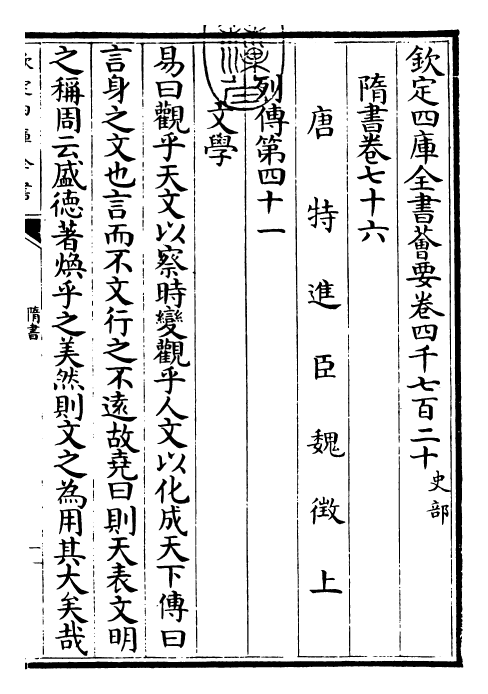 欽定四庫全書薈要卷四千七百二十 史部
隋書卷七十六
唐特進臣魏徵上
列傳第四十一
文學
易曰觀乎天文以察時變觀乎人文以化成天下傳曰
言身之文也言而不文行之不遠故堯曰則天表文明
之稱周云盛徳著煥乎之美然則文之為用其大矣哉
隋書